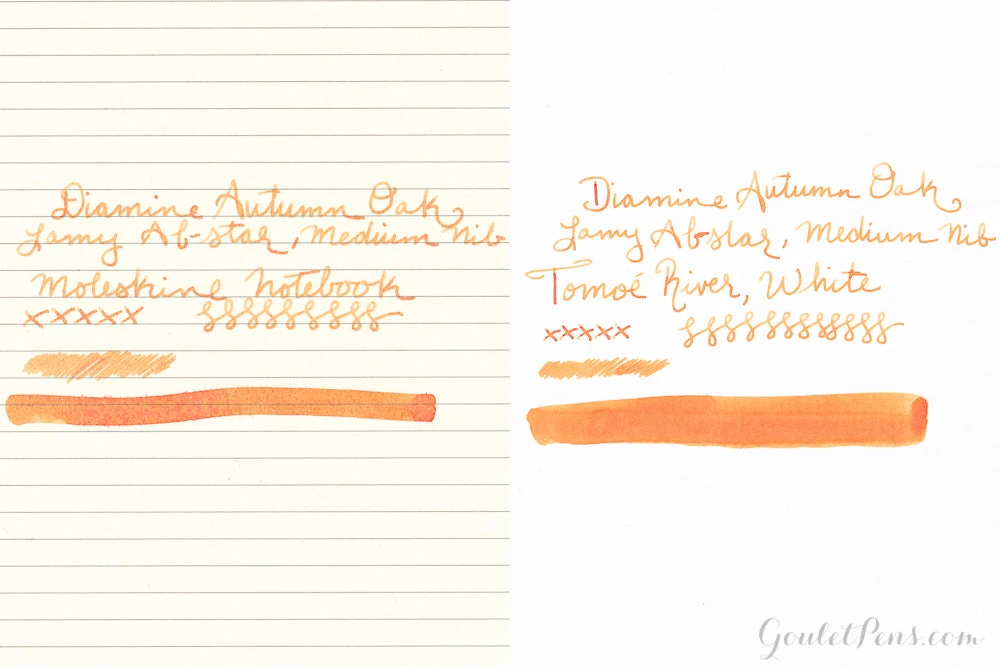 Diamine Autumn Oak
Lamy Al-star, Medium Nib
Moleskine Notebook
xxxxx
Diamine Autumn Oak
Lamy Al-star, Medium Nib
Tomoé River, White
xxxxx
GouletPens.com